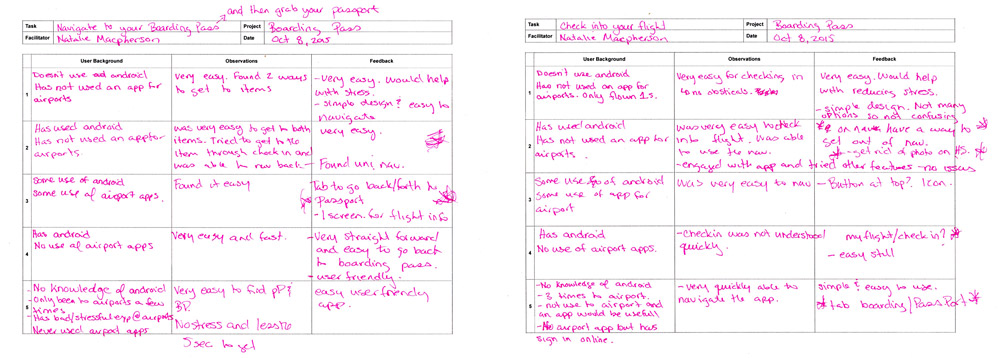 and then grab your passport
Task
Navigate to your Boarding Pass
Project
Boarding Pass
Facilitator
Natalie Macpherson
Date
Oct 8, 2015
User Background
Observations
Feedback
1
Doesn't use android
Has not used an app for
airports
Very easy. Found 2 ways
to get to items
- Very easy. Would help
with stress.
- simple design? easy to
navigate
2
Has used android
Has not used an app for
airports
was very easy to get to both
items. Tried to get to
item through check in and
was able to back.
very easy.
- Found uni. nav.
3
Some use of android
Some use of airport apps.
Found it easy
Tab to go back/forth to
Passport
- 1 screen for flight info
4
Has android
No use of airport apps
Very easy and fast.
- Very straight forward
and easy to go back
to boarding pass.
- user friendly.
5
- No knowledge of android
- Only been to airports a few
times
- Has bad/stressful exp @ airports
Never used airport apps
Very easy to find PP?
BP.
No stress and less
5 sec to get
easy user friendly
app.
Task
Check into your flight
Project
Boarding Pass
Facilitator
Natalie Macpherson
Date
Oct 8, 2015
User Background
Observations
Feedback
1
Doesn't use android
Has not used an app for
airports. Only flown 1s.
Very easy for checking in
no obsticals.
Very easy. Would help
with reducing stress.
- simple design. Not many
options so not confusing
2
Has used android
Has not used an app for
airports.
Was very easy to check
into flight. Was able
to use the nav.
- engaged with app and tried other features - no issues
on nav have a way to
get out of nav.
- get rid of photo on HS.
3
Some use of android
Some use of app for
airport
Was very easy to nav
- Button at top? Icon.
4
Has android
No use of airport apps.
- Checkin was not understood
quickly.
my flight/check in?
- easy still
5
- No knowledge of android
- 3 times to airport.
- not use to airport and
an app would be usefull
- No airport app but has
sign in online.
- very quickly able to
navigate the app.
simple? easy to use.
tab boarding/PassPort